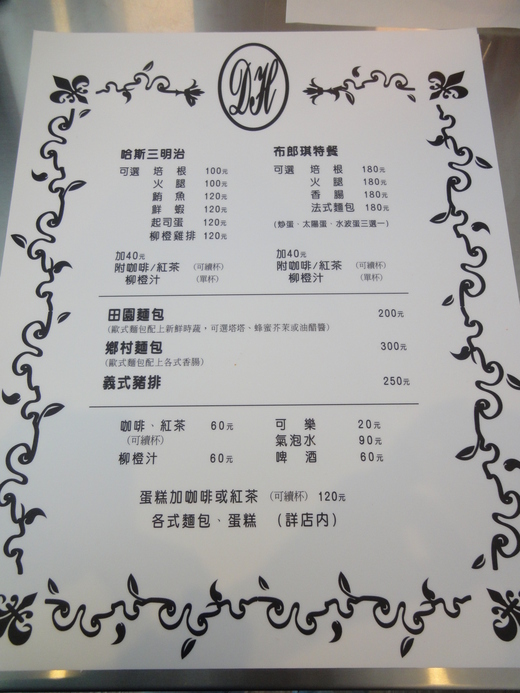 DH
哈斯三明治
可選 培根 100元
火腿 100元
鮪魚 120元
鮮蝦 120元
起司蛋 120元
柳橙雞排 120元
加40元
附咖啡/紅茶 (可續杯)
柳橙汁 (單杯)
布郎琪特餐
可選 培根 180元
火腿 180元
香腸 180元
法式麵包 180元
(炒蛋、太陽蛋、水波蛋三選一)
加40元
附咖啡/紅茶 (可續杯)
柳橙汁 (單杯)
田園麵包 200元
(歐式麵包配上新鮮時蔬，可選塔塔、蜂蜜芥茉或油醋醬)
鄉村麵包 300元
(歐式麵包配上各式香腸)
義式豬排 250元
咖啡、紅茶 60元
(可續杯)
柳橙汁 60元
可樂 20元
氣泡水 90元
啤酒 60元
蛋糕加咖啡或紅茶 (可續杯) 120元
各式麵包、蛋糕 (詳店內)